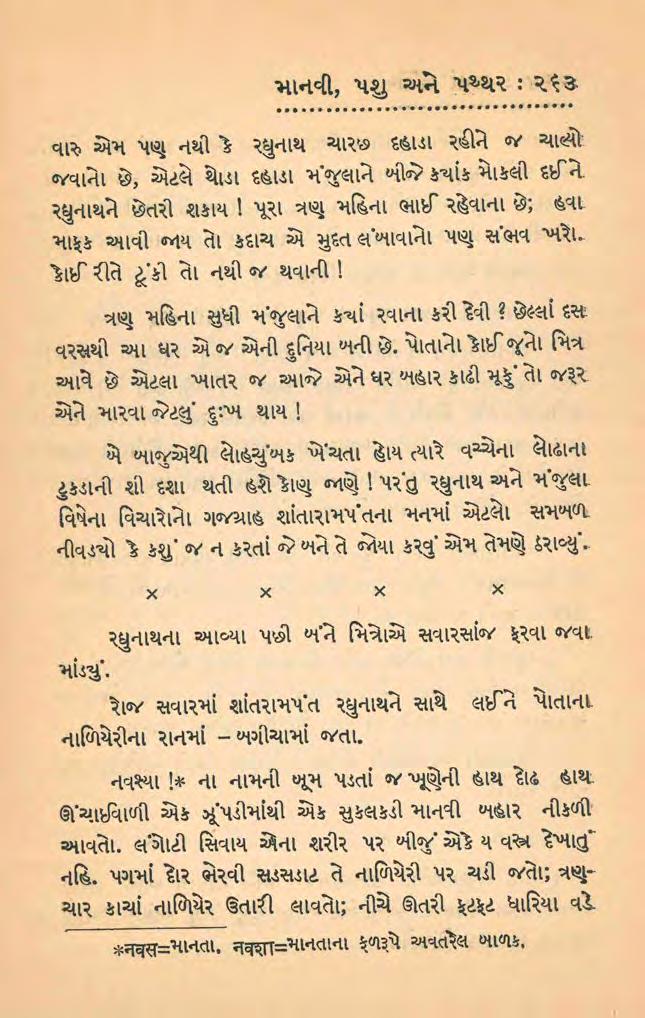 માનવી, પશુ અને પથ્થર : ૨૬૩
વારુ એમ પણ નથી કે રઘુનાથ ચારછ દહાડા રહીને જ ચાલ્યો
જવાનો છે, એટલે થોડા દહાડા મંજુલાને બીજે કયાંક મોકલી દઈને
રઘુનાથને છેતરી શકાય ! પૂરા ત્રણ મહિના ભાઈ રહેવાના છે; હવા
માફક આવી જાય તો કદાચ એ મુદત લંબાવાનો પણ સંભવ ખરો.
કોઈ રીતે ટૂંકી તો નથી જ થવાની !
ત્રણ મહિના સુધી મંજુલાને કયાં રવાના કરી દેવી ? છેલ્લાં દસ
વરસથી આ ઘર એ જ એની દુનિયા બની છે. પોતાનો કોઈ જૂનો મિત્ર
આવે છે એટલા ખાતર જ આજે એને ઘર બહાર કાઢી મૂકું તો જરૂર
એને મારવા જેટલું દુઃખ થાય !
બે બાજુએથી લોહચુંબક ખેંચતા હોય ત્યારે વચ્ચેના લોઢાના
ટુકડાની શી દશા થતી હશે કોણ જાણે ! પરંતુ રઘુનાથ અને મંજુલા
વિષેના વિચારોનો ગજગ્રાહ શાંતારામપંતના મનમાં એટલો સમબળ
નીવડયો કે કશું જ ન કરતાં જે બને તે જોયા કરવું એમ તેમણે ઠરાવ્યું.
× × × ×
રઘુનાથના આવ્યા પછી બંને મિત્રોએ સવારસાંજ ફરવા જવા
માંડયું.
રોજ સવારમાં શાંતરામપંત રઘુનાથને સાથે લઈને પોતાના
નાળિયેરીના રાનમાં – બગીચામાં જતા.
નવશ્યા !* ના નામની બૂમ પડતાં જ ખૂણેની હાથ દોઢ હાથ
ઊંચાઈવાળી એક ઝૂંપડીમાંથી એક સુકલકડી માનવી બહાર નીકળી
આવતો. લંગોટી સિવાય એના શરીર પર બીજું એકે ય વસ્ત્ર દેખાતું
નહિ. પગમાં દોર ભેરવી સડસડાટ તે નાળિયેરી પર ચડી જતો; ત્રણ-
ચાર કાચાં નાળિયેર ઉતારી લાવતો; નીચે ઊતરી ફટફટ ધારિયા વડે
*नवस=માનતા. नवशा=માનતાના ફળરૂપે અવતરેલ બાળક.